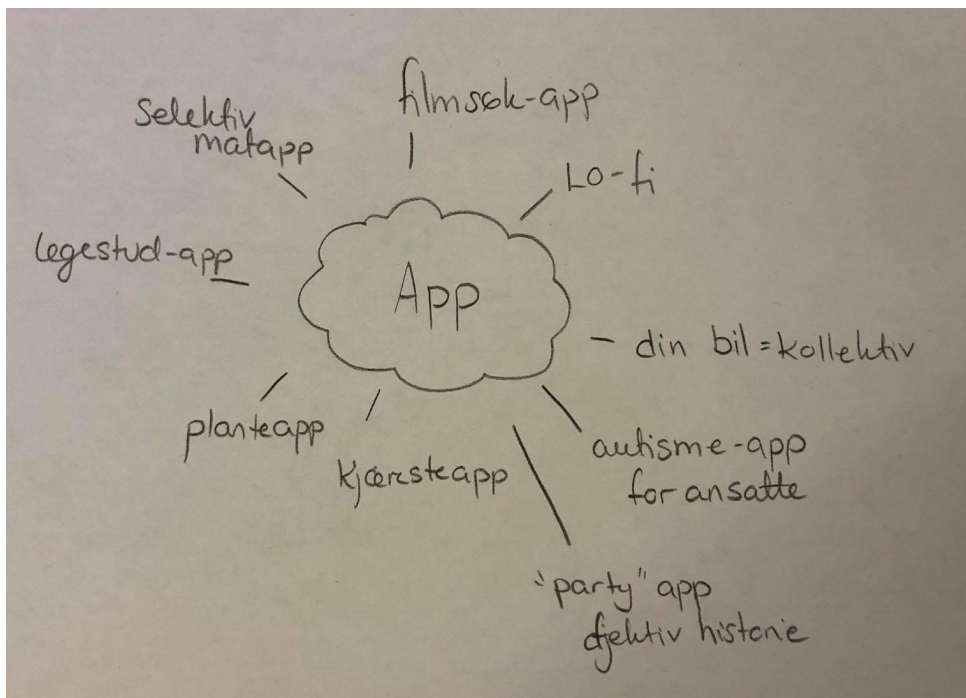 filmsøk-app
Selektiv
matapp
LO-fi
legestud-app
App
din bil = kollektiv
planteapp
kjæresteapp
autisme-app
for ansatte
"party" app
djektiv historie